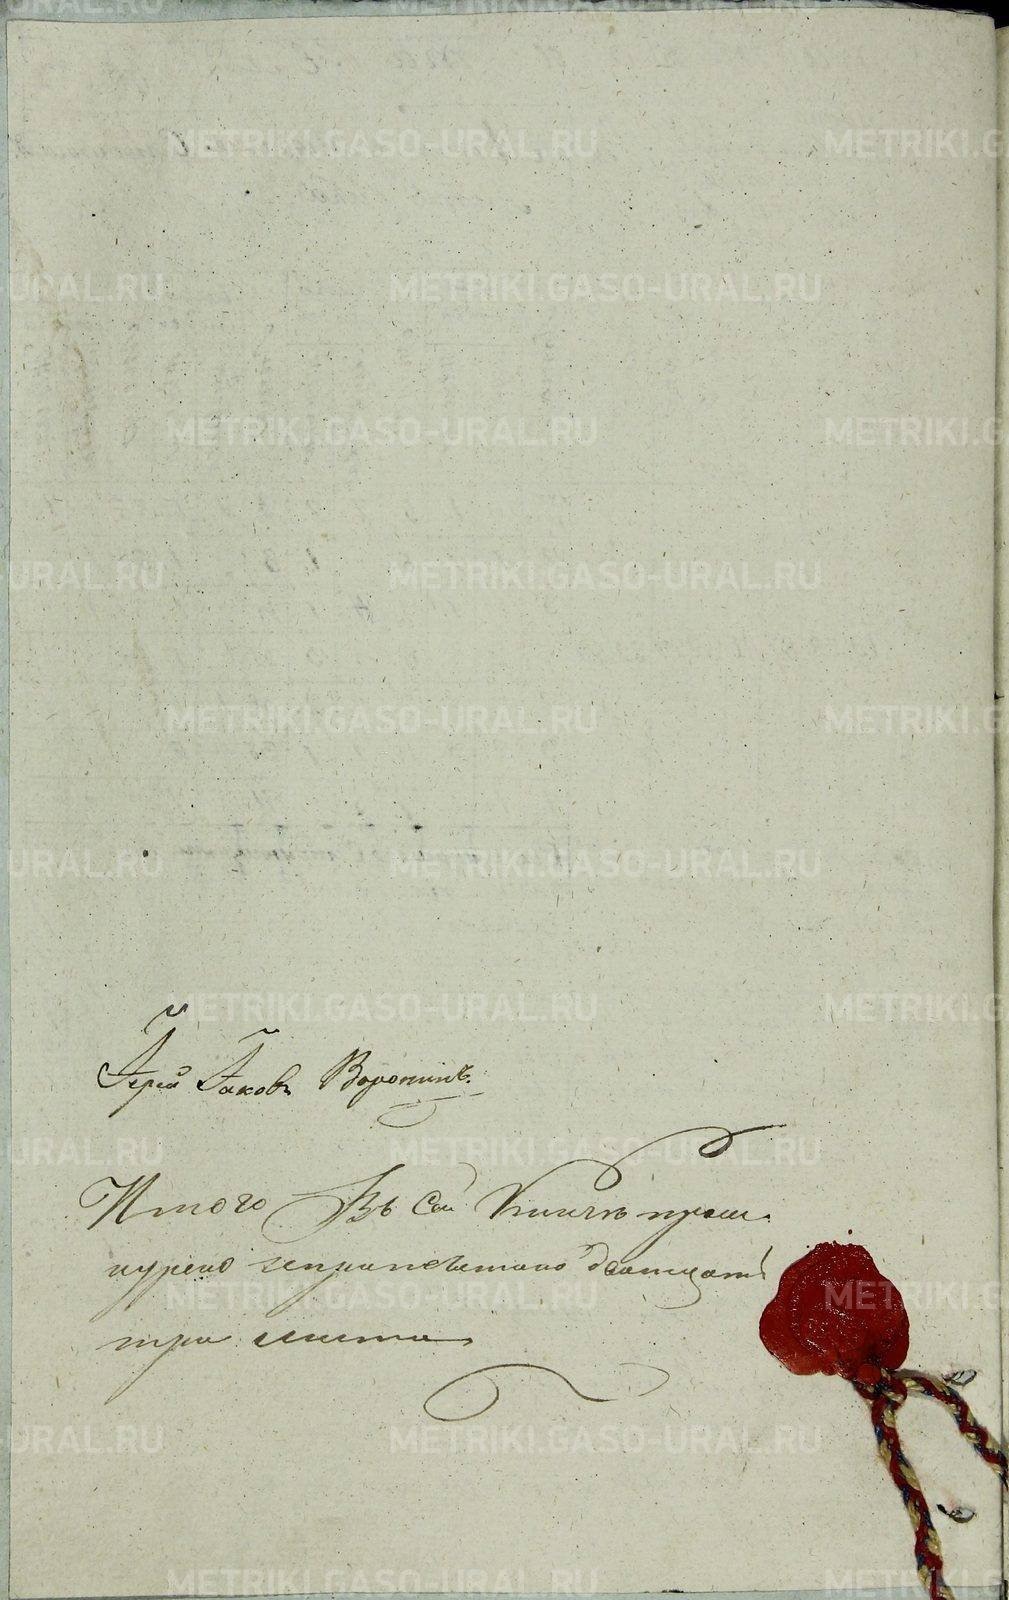 Іерей Іаковъ Воронинъ.
Итого Въ сей Книгѣ прош-
нурено запрапечатано двадцать
три листа
METRIKI.GASO-URAL.RU